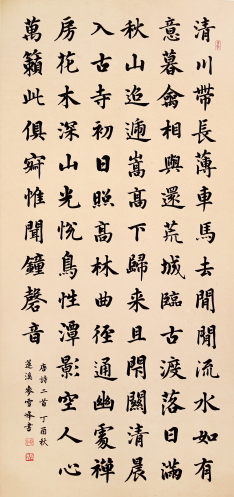 清川帶長薄車馬去閒閒流水如有
意暮禽相與還荒城臨古渡落日滿
秋山迢遞嵩高下歸來且閉關清晨
入古寺初日照高林曲徑通幽處禪
房花木深山光悅鳥性潭影空人心
萬籟此俱寂惟聞鐘磬音
唐詩二首丁酉秋
溪麥雪峰書